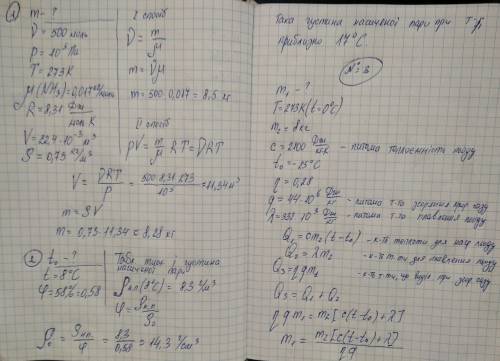 ① m - ?
ν = 500 моль
p = 10⁵ Па
T = 273K
μ(NH₃) = 0,017 кг/моль
R = 8,31 Дж/моль K
V = 22,4·10⁻³ м³
ρ = 0,73 кг/м³
I спосіб
ν = m/μ
m = νμ
m = 500·0,017 = 8,5 кг
II спосіб
pV = m/μ RT = νRT
V = νRT/p = 500·8,31·273/10⁵ = 11,34 м³
m = ρV
m = 0,73·11,34 = 8,28 кг
② t₀ - ?
t = 8°C
φ = 58% = 0,58
Табл. тиск і густина
насиченої пари
ρн.п (8°C) = 8,3 г/м³
φ = ρн.п/ρ₀
ρ₀ = ρн.п./φ = 8,3/0,58 = 14,3 г/см³
Така густина насиченої пари при
приблизно 17°C.
№: 3
m₁ - ?
T = 273K (t = 0°C)
m₂ = 8кг
c = 2100 Дж/кг·K - питома теплоємність льоду
t₀ = -15°C
η = 0,28
q = 44·10⁶ Дж/кг - питома т-та згорання прир. газу
λ = 332·10³ Дж/кг - питома т-та плавлення льоду
Q₁ = cm₂(t - t₀) - к-ть теплоти для нагр. льоду
Q₂ = λm₂ - к-ть т-ти для плавлення льоду
Q₃ = ηqm₁ - к-ть т-ти, що виділ. при згор. газу
Q₃ = Q₁ + Q₂
ηqm₁ = m₂[c(t-t₀)+λ]
m₁ = m₂[c(t-t₀)+λ]/ηq